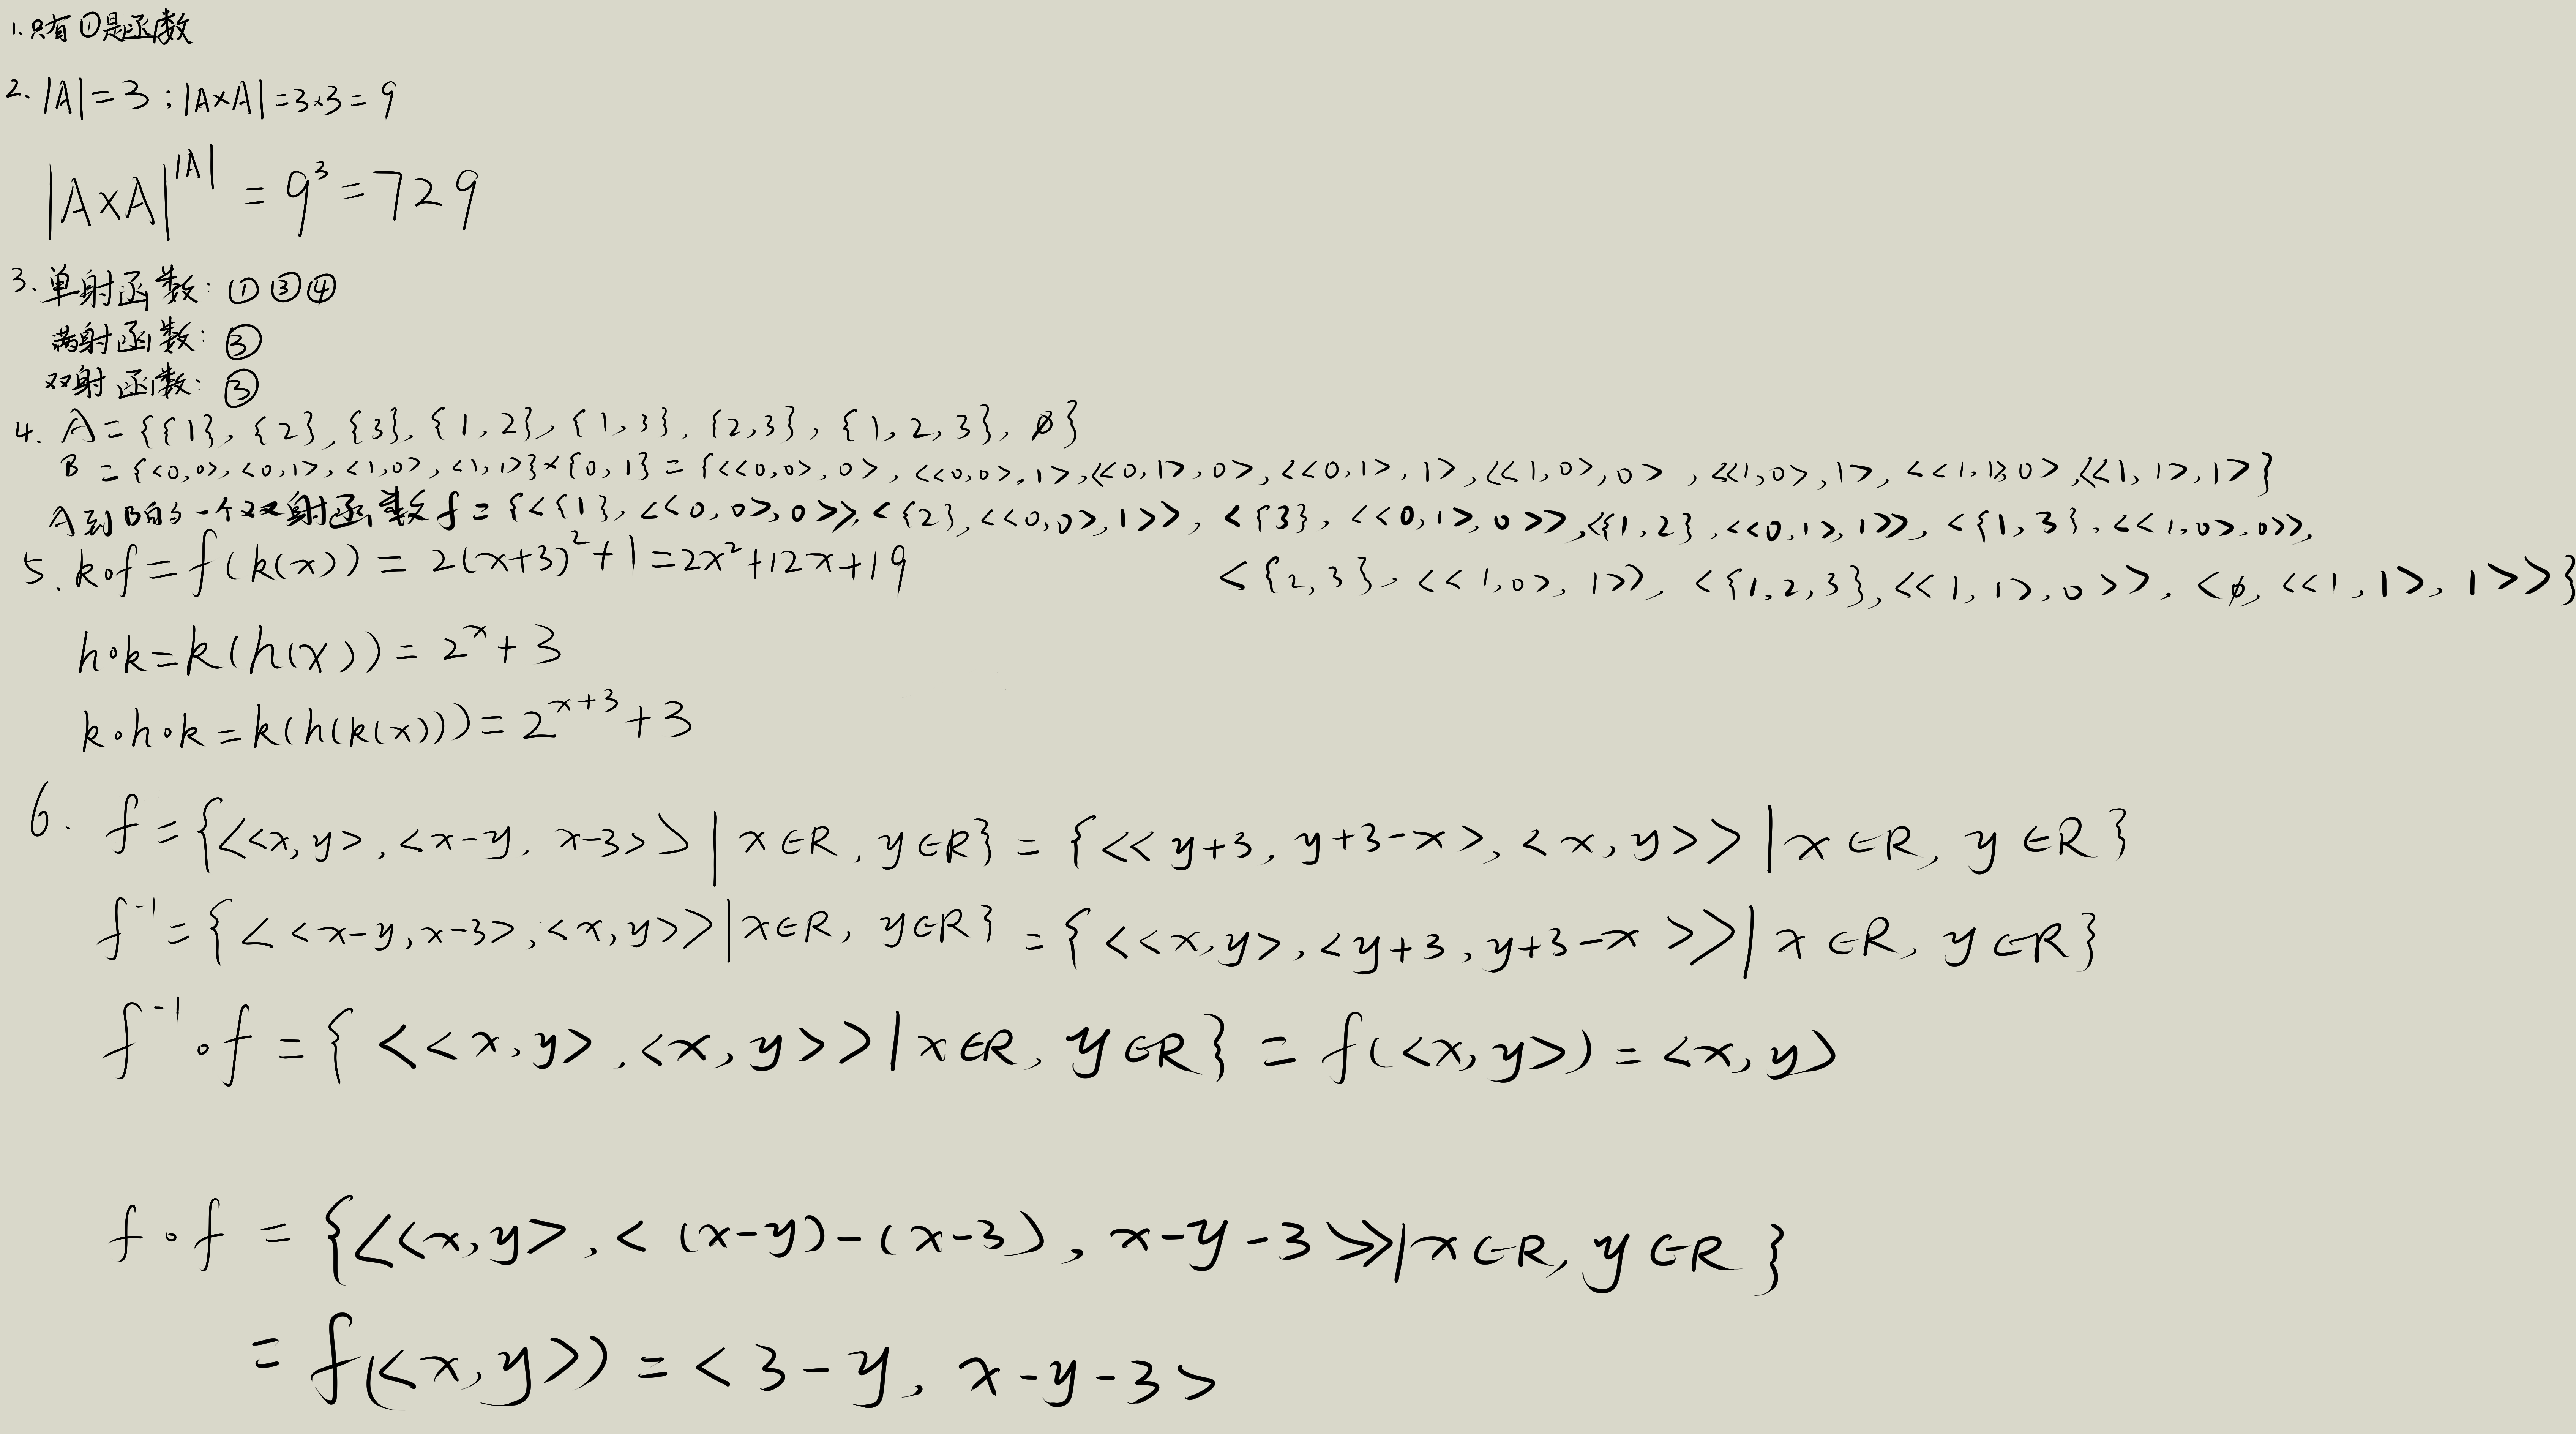 1. 只有①是函数
2. |A|=3 ; |A×A|=3×3=9
|A×A|^|A| = 9³ = 729
3. 单射函数: ①③④
满射函数: ③
双射函数: ③
4. A={{1},{2},{3},{1,2},{1,3},{2,3},{1,2,3},∅}
B={<0,0>,<0,1>,<1,0>,<1,1>}×{0,1}={<<0,0>,0>,<<0,0>,1>,<<0,1>,0>,<<0,1>,1>,<<1,0>,0>,<<1,0>,1>,<<1,1>,0>,<<1,1>,1>}
A到B的一个双射函数f={<{1},<<0,0>,0>>,<{2},<<0,0>,1>>,<{3},<<0,1>,0>>,<{1,2},<<0,1>,1>>,<{1,3},<<1,0>,0>>,
<{2,3},<<1,0>,1>>,<{1,2,3},<<1,1>,0>>,<∅,<<1,1>,1>>}
5. k∘f=f(k(x))=2(x+3)²+1=2x²+12x+19
h∘k=k(h(x))=2^x+3
k∘h∘k=k(h(k(x)))=2^(x+3)+3
6. f={<<x,y>,<x-y,x-3>>|x∈R,y∈R}={<<y+3,y+3-x>,<x,y>>|x∈R,y∈R}
f⁻¹={<<x-y,x-3>,<x,y>>|x∈R,y∈R}={<<x,y>,<y+3,y+3-x>>|x∈R,y∈R}
f⁻¹∘f={<<x,y>,<x,y>>|x∈R,y∈R}=f(<x,y>)=<x,y>
f∘f={<<x,y>,<(x-y)-(x-3),x-y-3>>|x∈R,y∈R}
=f(<x,y>)=<3-y,x-y-3>